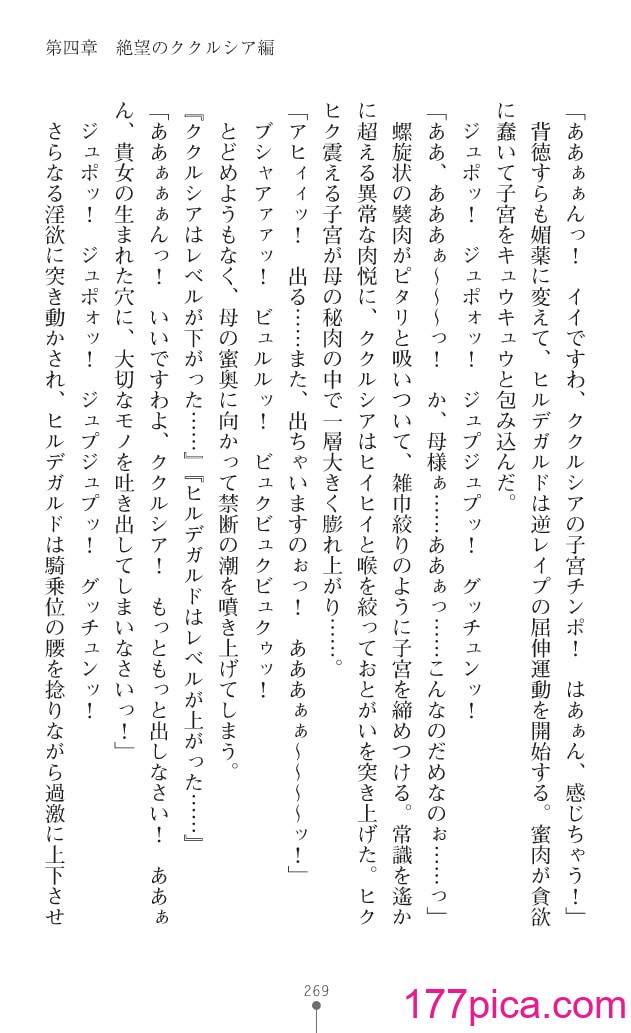 第四章　絶望のククルシア編
「ああぁぁんっ！　イイですわ、ククルシアの子宮チンポ！　はあぁん、感じちゃう！」
　背徳すらも媚薬に変えて、ヒルデガルドは逆レイプの屈伸運動を開始する。蜜肉が貪欲
に蠢いて子宮をキュウキュウと包み込んだ。
　ジュポッ！　ジュポォッ！　ジュプジュプッ！　グッチュンッ！
「ああ、あああぁ～～～っ！　か、母様ぁ……ああぁっ……こんなのだめなのぉ……っ」
　螺旋状の襞肉がピタリと吸いついて、雑巾絞りのように子宮を締めつける。常識を遙か
に超える異常な肉悦に、ククルシアはヒイヒイと喉を絞っておとがいを突き上げた。ヒク
ヒク震える子宮が母の秘肉の中で一層大きく膨れ上がり……。
「アヒィィッ！　出る……また、出ちゃいますのぉっ！　あああぁぁ～～～～ッ！」
　ブシャアァァッ！　ビュルルッ！　ビュクビュクビュクゥッ！
　とどめようもなく、母の蜜奥に向かって禁断の潮を噴き上げてしまう。
『ククルシアはレベルが下がった……』『ヒルデガルドはレベルが上がった……』
「ああぁぁぁんっ！　いいですわよ、ククルシア！　もっともっと出しなさい！　ああぁ
ん、貴女の生まれた穴に、大切なモノを吐き出してしまいなさいっ！」
　ジュポッ！　ジュポォッ！　ジュプジュプッ！　グッチュンッ！
　さらなる淫欲に突き動かされ、ヒルデガルドは騎乗位の腰を捻りながら過激に上下させ
269
177pica.com